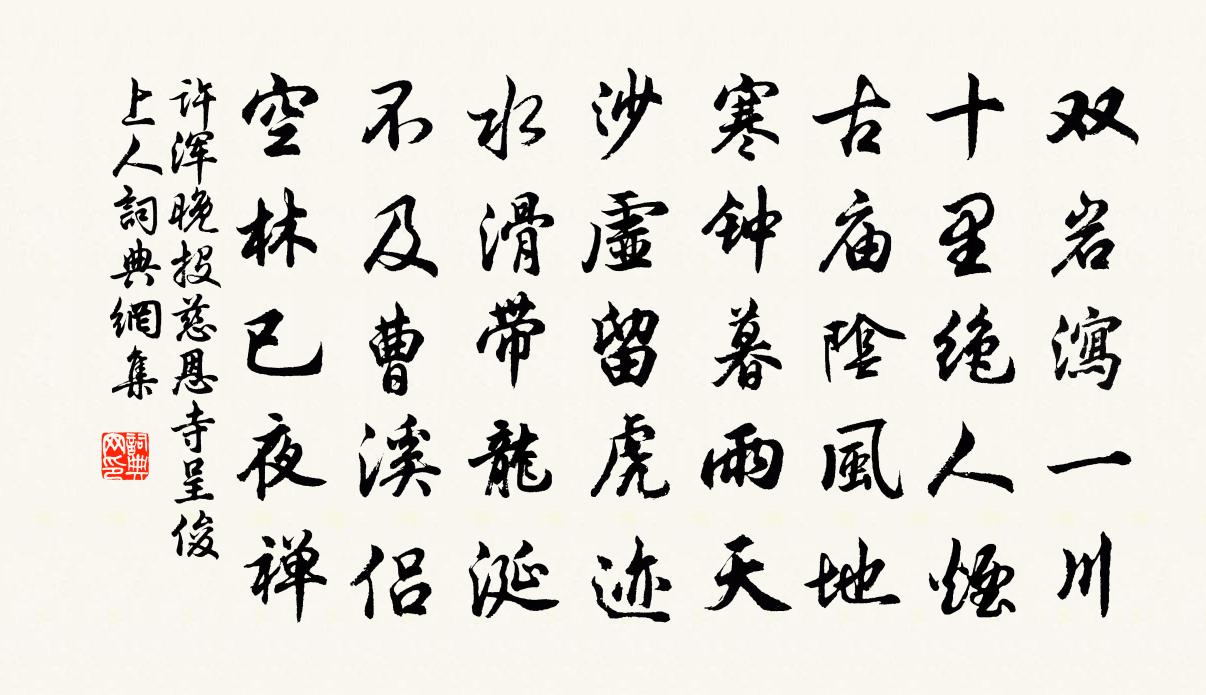 双岩瀉一川
十里绝人煙
古庙陰風地
寒钟暮雨天
沙虛留虎迹
水滑带龍涎
不及曹溪侣
空林已夜禅
许浑晚投慈恩寺呈俊
上人詞典網集
詞典网印